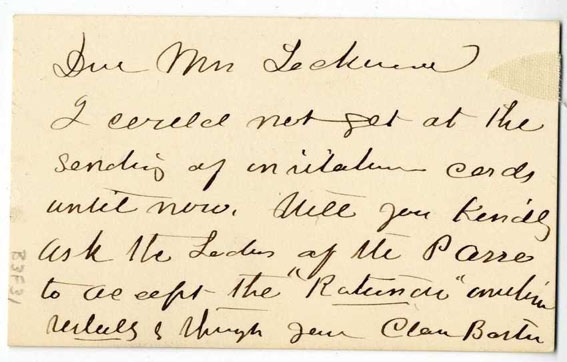 Dear Mrs Lockwood
I could not get at the
sending of invitation cards
until now. Will you kindly
ask the Ladies of the
to accept the "
& through you Clara Barton